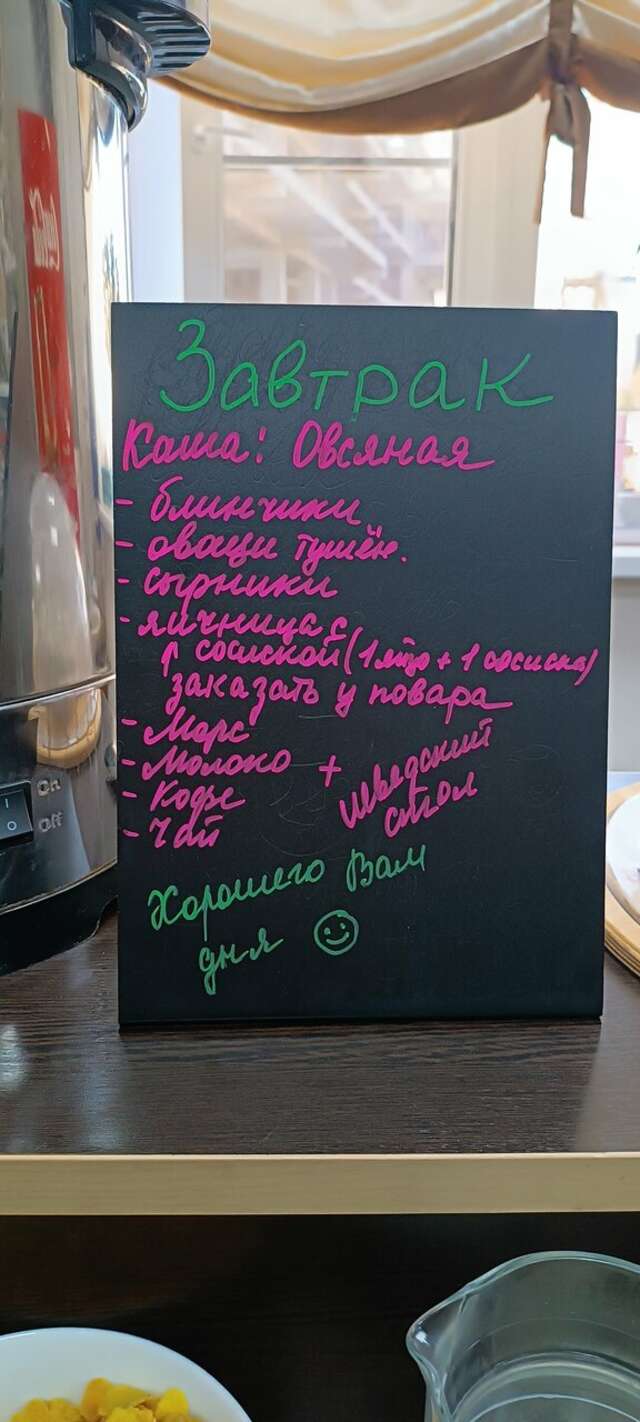 Завтрак
Каша: Овсяная
- блинчики
- овощи тушён.
- сырники
- яичница с
↑ сосиской (1 яйцо + 1 сосиска)
заказать у повара
- Морс
- Молоко + шведский
- Кофе стол
- Чай
Хорошего Вам
дня ☺
On
Off